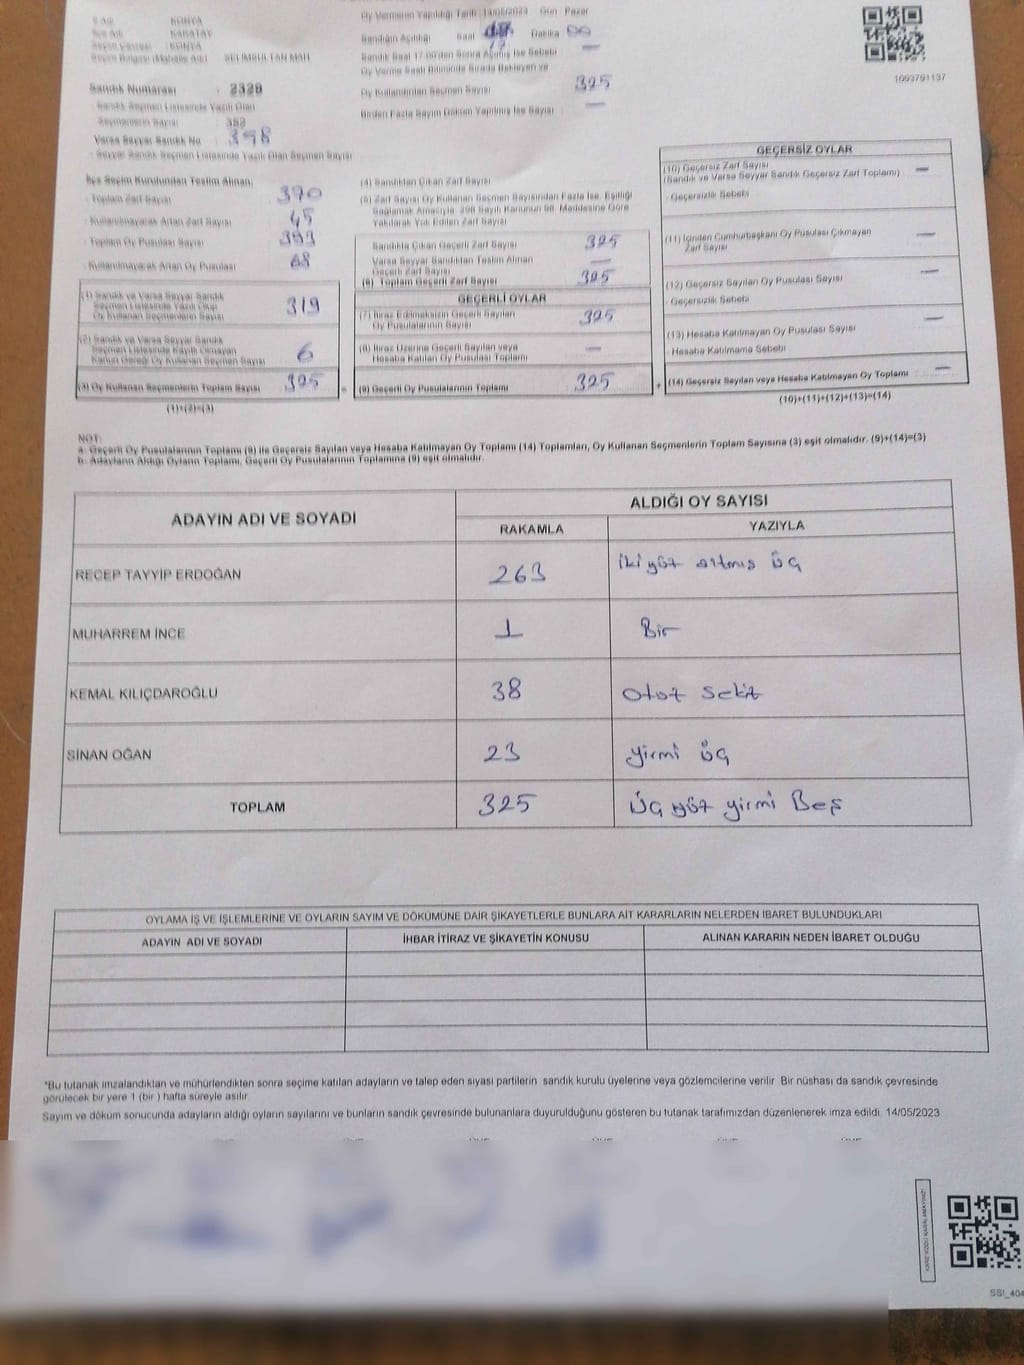 İl Adı : KONYA
İlçe Adı : KARATAY
Seçim Çevresi : KONYA
Seçim Bölgesi (Mahalle Adı) : SELİMSULTAN MAH
Sandık Numarası : 2329
Oy Vermenin Yapıldığı Tarih : 14/05/2023 Gün Pazar
Sandığın Açıldığı Saat 17 Dakika 00
Sandık Saat 17:00'den Sonra Açılmış İse Sebebi —
Oy Verme Saati Bitiminde Sırada Bekleyen ve
Oy Kullandırılan Seçmen Sayısı 325
Birden Fazla Sayım Döküm Yapılmış İse Sayısı —
1003791137
- Sandık Seçmen Listesinde Yazılı Olan
Seçmenlerin Sayısı
Varsa Seyyar Sandık No : 398
- Seyyar Sandık Seçmen Listesinde Yazılı Olan Seçmen Sayısı
İlçe Seçim Kurulundan Teslim Alınan;
- Toplam Zarf Sayısı 370
- Kullanılmayarak Artan Zarf Sayısı 45
- Toplam Oy Pusulası Sayısı 393
- Kullanılmayarak Artan Oy Pusulası 68
(1) Sandık ve Varsa Seyyar Sandık
Seçmen Listesinde Yazılı Olup
Oy Kullanan Seçmenlerin Sayısı 319
(2) Sandık ve Varsa Seyyar Sandık
Seçmen Listesinde Kayıtlı Olmayan
Kanun Gereği Oy Kullanan Seçmen Sayısı 6
(3) Oy Kullanan Seçmenlerin Toplam Sayısı 325 =
(1)+(2)=(3)
(4) Sandıktan Çıkan Zarf Sayısı
(5) Zarf Sayısı Oy Kullanan Seçmen Sayısından Fazla İse, Eşitliği
Sağlamak Amacıyla, 298 Sayılı Kanunun 98. Maddesine Göre
Yakılarak Yok Edilen Zarf Sayısı
Sandıkta Çıkan Geçerli Zarf Sayısı 325
Varsa Seyyar Sandıktan Teslim Alınan
Geçerli Zarf Sayısı —
(6) Toplam Geçerli Zarf Sayısı 325
GEÇERLİ OYLAR
(7) İtiraz Edilmeksizin Geçerli Sayılan
Oy Pusulalarının Sayısı 325
(8) İtiraz Üzerine Geçerli Sayılan veya
Hesaba Katılan Oy Pusulası Toplamı —
(9) Geçerli Oy Pusulalarının Toplamı 325 +
GEÇERSİZ OYLAR
(10) Geçersiz Zarf Sayısı —
(Sandık ve Varsa Seyyar Sandık Geçersiz Zarf Toplamı)
- Geçersizlik Sebebi
(11) İçinden Cumhurbaşkanı Oy Pusulası Çıkmayan —
Zarf Sayısı
(12) Geçersiz Sayılan Oy Pusulası Sayısı —
- Geçersizlik Sebebi
(13) Hesaba Katılmayan Oy Pusulası Sayısı —
- Hesaba Katılmama Sebebi
(14) Geçersiz Sayılan veya Hesaba Katılmayan Oy Toplamı —
(10)+(11)+(12)+(13)=(14)
NOT:
a- Geçerli Oy Pusulalarının Toplamı (9) ile Geçersiz Sayılan veya Hesaba Katılmayan Oy Toplamı (14) Toplamları, Oy Kullanan Seçmenlerin Toplam Sayısına (3) eşit olmalıdır. (9)+(14)=(3)
b- Adayların Aldığı Oyların Toplamı, Geçerli Oy Pusulalarının Toplamına (9) eşit olmalıdır.
ADAYIN ADI VE SOYADI ALDIĞI OY SAYISI
RAKAMLA YAZIYLA
RECEP TAYYİP ERDOĞAN 263 İki yüz altmış üç
MUHARREM İNCE 1 Bir
KEMAL KILIÇDAROĞLU 38 otuz sekiz
SİNAN OĞAN 23 yirmi üç
TOPLAM 325 Üç yüz yirmi Beş
OYLAMA İŞ VE İŞLEMLERİNE VE OYLARIN SAYIM VE DÖKÜMÜNE DAİR ŞİKAYETLERLE BUNLARA AİT KARARLARIN NELERDEN İBARET BULUNDUKLARI
ADAYIN ADI VE SOYADI İHBAR İTİRAZ VE ŞİKAYETİN KONUSU ALINAN KARARIN NEDEN İBARET OLDUĞU
*Bu tutanak imzalandıktan ve mühürlendikten sonra seçime katılan adayların ve talep eden siyasi partilerin sandık kurulu üyelerine veya gözlemcilerine verilir. Bir nüshası da sandık çevresinde
görülecek bir yere 1 (bir ) hafta süreyle asılır.
Sayım ve döküm sonucunda adayların aldığı oyların sayılarını ve bunların sandık çevresinde bulunanlara duyurulduğunu gösteren bu tutanak tarafımızdan düzenlenerek imza edildi. 14/05/2023
KARE KODU KARALAMAYINIZ!
SSI_404